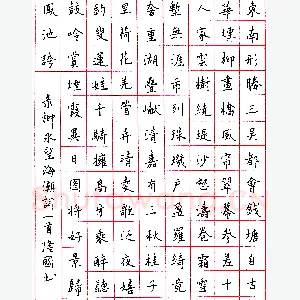 東南形勝三吳都會錢塘自古
華堙柳畫橋風帘翠幕參差十
人家雲樹繞堤沙怒濤卷霜雪
塹無涯市列珠璣戶盈羅綺競
奢重湖疊巘清嘉有三秋桂子
里荷花羌管弄晴菱歌泛夜嬉
釣叟蓮娃千騎擁高牙乘醉聽
鼓吟賞煙霞異日圖將好景歸
鳳池誇
录柳永望海潮詞一首